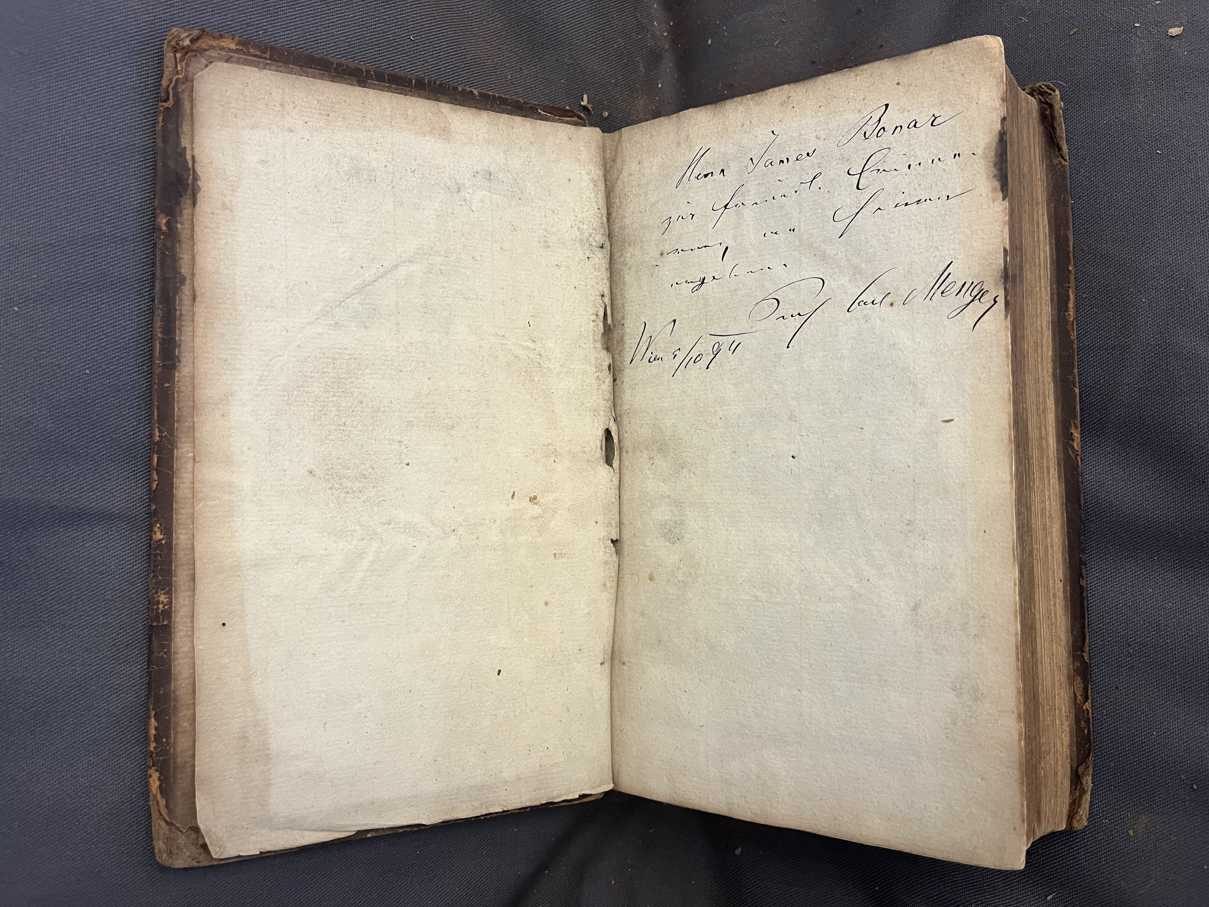 Herrn James Bonar
zur freundl. Erinne-
rung an seinen
ergebenen
Prof Carl Menger
Wien 5/10 94